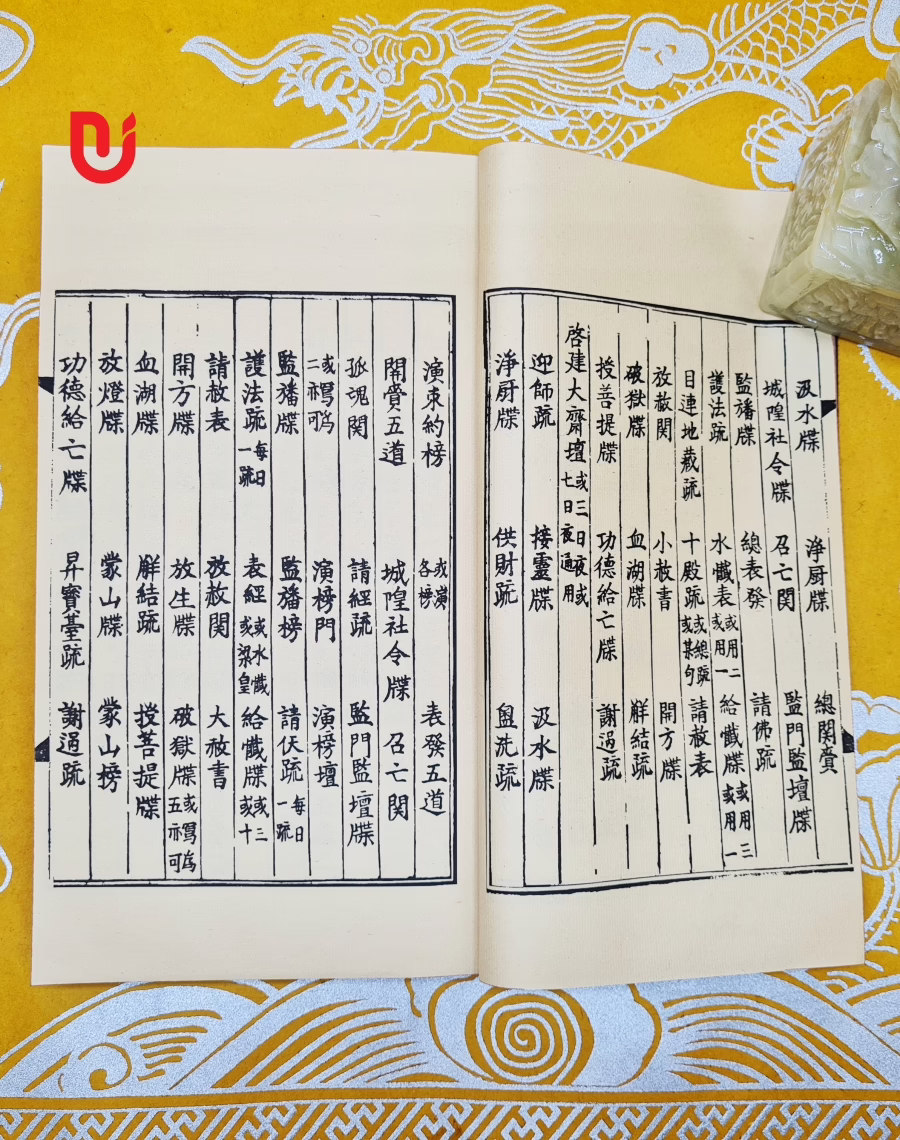 汲水牒 淨厨牒 總関賫
城隍社令牒 召亡関 監門監壇牒
監旛牒 總表發 請佛疏
護法疏 水懺表或用二或用一 給懺牒或用三或用一
目連地藏疏 十殿疏或總疏或某句 請赦表
放赦関 小赦書 開方牒
破獄牒 血湖牒 觧結疏
授菩提牒 功德給亡牒 謝過疏
啓建大齋壇或三日夜或七日夜通用
迎師疏 接靈牒 汲水牒
淨厨牒 供財疏 盥洗疏
演束約榜 或演各榜 表發五道
関賫五道 城隍社令牒 召亡関
孤魂関 請經疏 監門監壇牒
或禡二祃可 演榜門 演榜壇
監旛牒 監旛榜 請伏疏每日一疏
護法疏每日一疏 表經或水懺或梁皇 給懺牒或三或十
請赦表 放赦関 大赦書
開方牒 放生牒 破獄牒
血湖牒 觧結疏 授菩提牒
放燈牒 蒙山牒 蒙山榜
功德給亡牒 昇寶臺疏 謝過疏